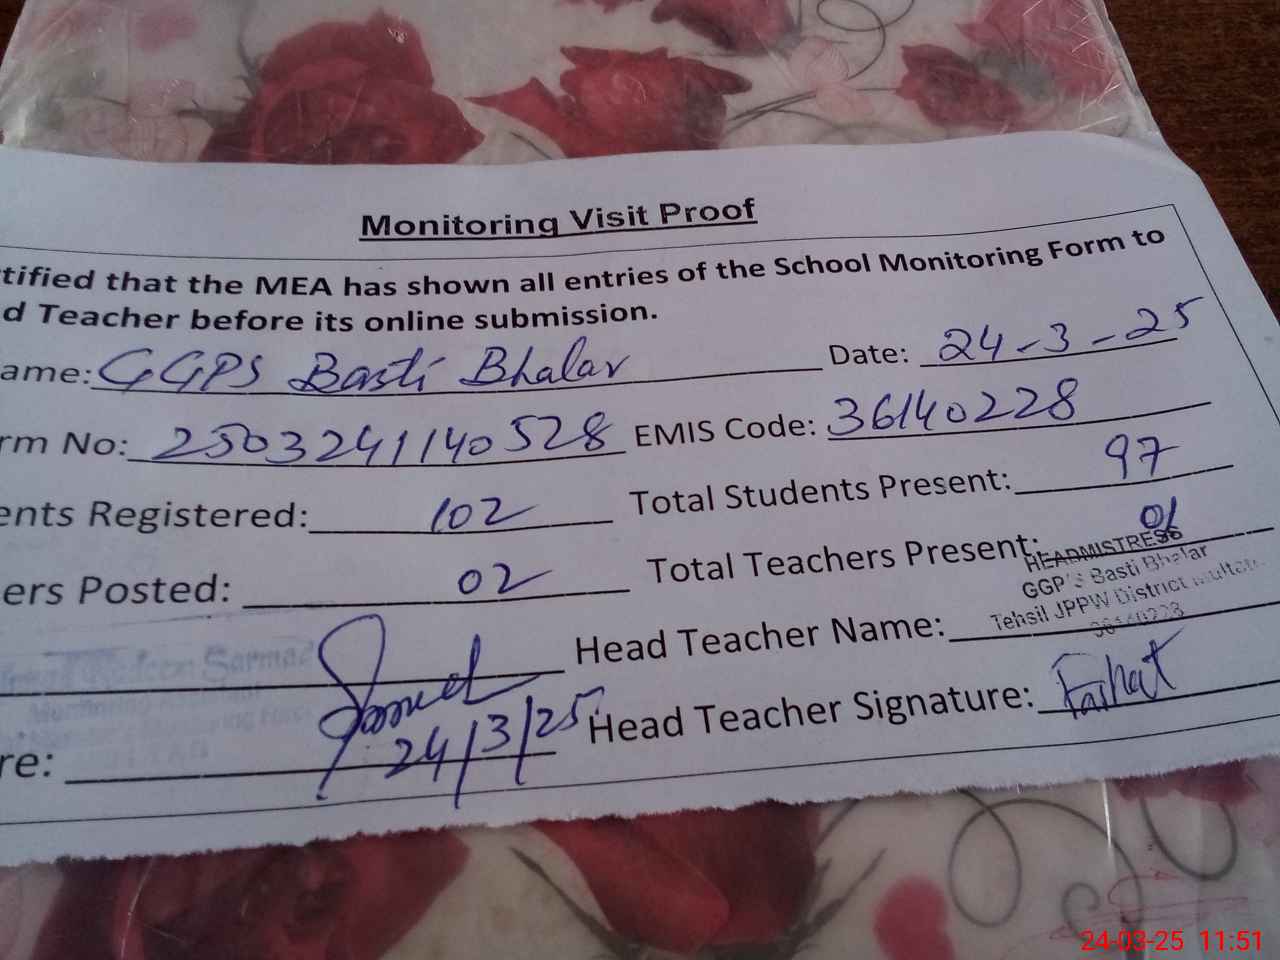 Monitoring Visit Proof
tified that the MEA has shown all entries of the School Monitoring Form to
d Teacher before its online submission.
ame: GGPS Basti Bhalar Date: 24-3-25
rm No: 2503241140528 EMIS Code: 36140228
ents Registered: 102 Total Students Present: 97
ers Posted: 02 Total Teachers Present: 01
HEADMISTRESS
GGP's Basti Bhalar
Tehsil JPPW District Multan
36140228
Head Teacher Name:
Sarmad
24/3/25
re: Head Teacher Signature: Farhat
24-03-25 11:51